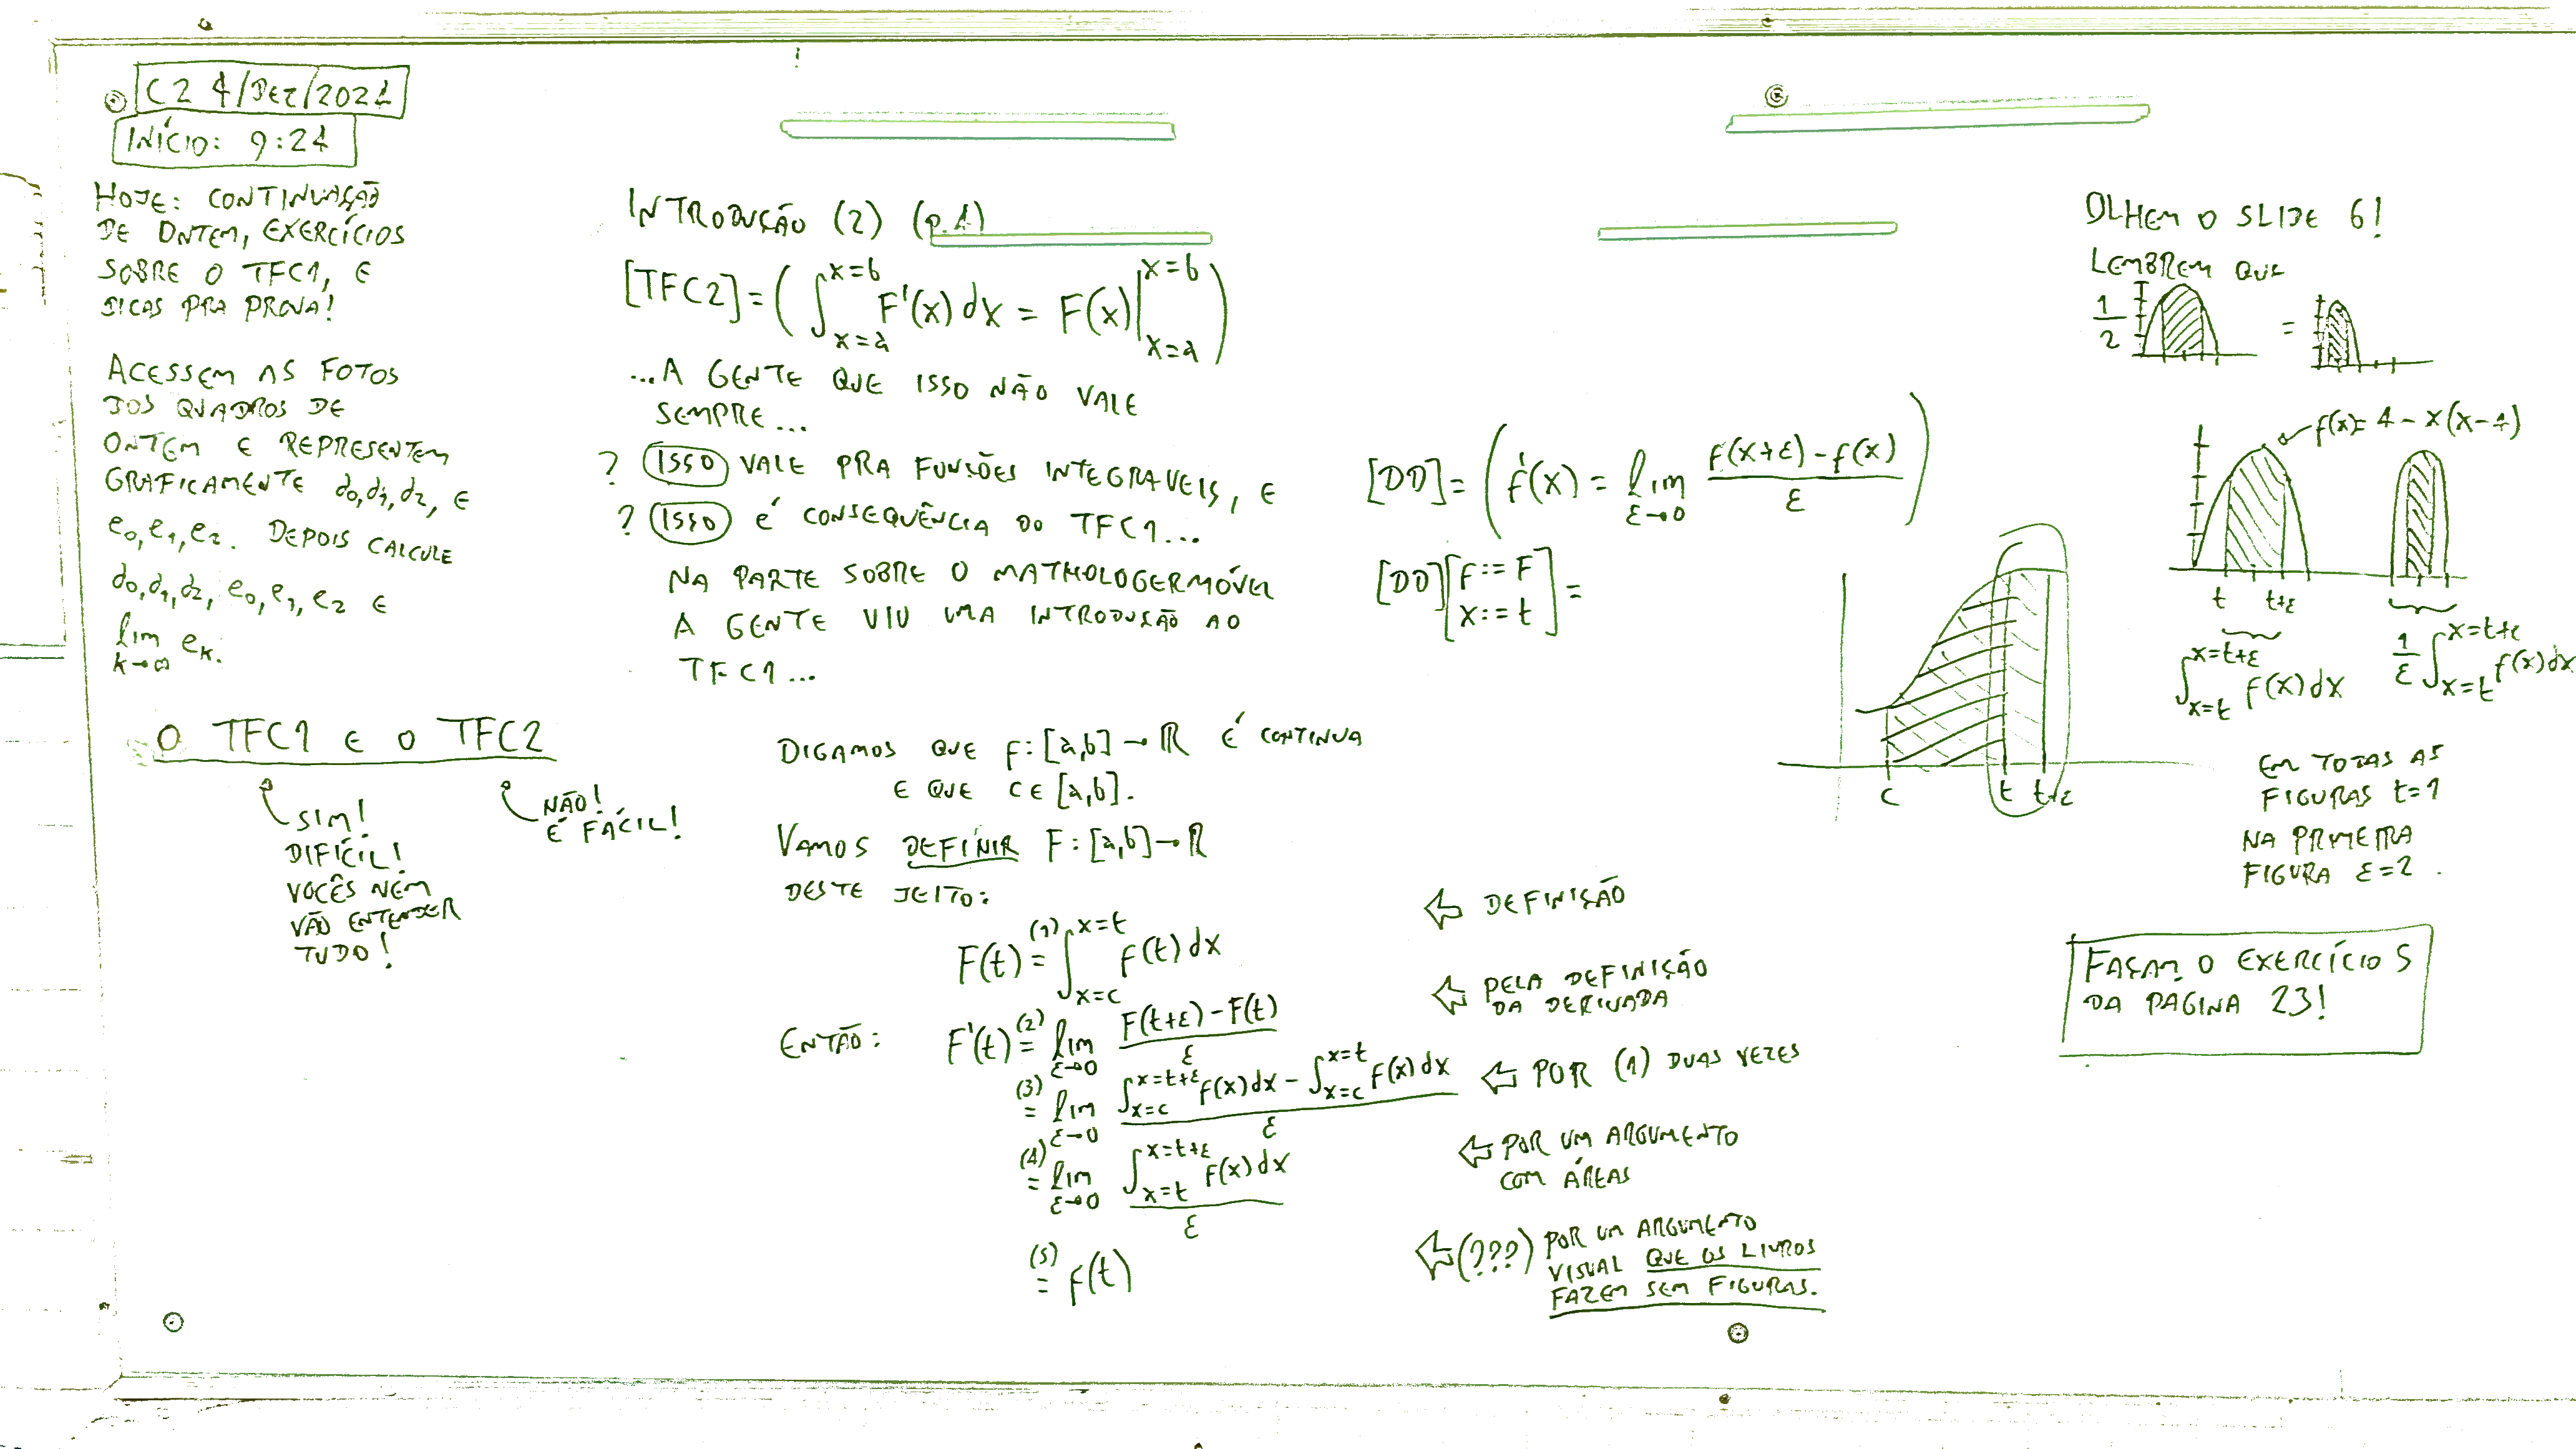 C2 4/DEZ/2021
INÍCIO: 9:21
HOJE: CONTINUAÇÃO
DE ONTEM, EXERCÍCIOS
SOBRE O TFC1, E
DICAS PRA PROVA!
ACESSEM AS FOTOS
DOS QUADROS DE
ONTEM E REPRESENTEM
GRAFICAMENTE d₀,d₁,d₂, E
e₀,e₁,e₂. DEPOIS CALCULE
d₀,d₁,d₂, e₀,e₁,e₂ E
lim eₖ.
k→∞
O TFC1 E O TFC2
SIM!
DIFÍCIL!
VOCÊS NEM
VÃO ENTENDER
TUDO!
NÃO!
É FÁCIL!
INTRODUÇÃO (2) (p.4)
[TFC2] = ( ∫_{x=a}^{x=b} F'(x) dx = F(x)|_{x=a}^{x=b} )
...A GENTE QUE ISSO NÃO VALE
SEMPRE...
? ISSO VALE PRA FUNÇÕES INTEGRAVEIS, E
? ISSO É CONSEQUÊNCIA DO TFC1...
NA PARTE SOBRE O MATHOLOGERMÓVEL
A GENTE VIU UMA INTRODUÇÃO AO
TFC1...
DIGAMOS QUE f: [a,b] → ℝ É CONTINUA
E QUE C ∈ [a,b].
VAMOS DEFINIR F: [a,b] → ℝ
DESTE JEITO:
F(t) (1)= ∫_{x=c}^{x=t} f(t) dx
⇐ DEFINIÇÃO
ENTÃO: F'(t) (2)= lim_{ε→0} (F(t+ε) - F(t))/ε
⇐ PELA DEFINIÇÃO
DA DERIVADA
(3)= lim_{ε→0} (∫_{x=c}^{x=t+ε} f(x) dx - ∫_{x=c}^{x=t} f(x) dx)/ε
⇐ POR (1) DUAS VEZES
(4)= lim_{ε→0} (∫_{x=t}^{x=t+ε} f(x) dx)/ε
⇐ POR UM ARGUMENTO
COM ÁREAS
(5)= f(t)
⇐ (???) POR UM ARGUMENTO
VISUAL QUE OS LIVROS
FAZEM SEM FIGURAS.
[DD] = ( f'(x) = lim_{ε→0} (f(x+ε) - f(x))/ε )
[DD] [f := F
x := t] =
c t t+ε
OLHEM O SLIDE 6!
LEMBREM QUE
1/2 =
f(x) = 4 - x(x-4)
t t+ε
∫_{x=t}^{x=t+ε} f(x) dx
1/ε ∫_{x=t}^{x=t+ε} f(x) dx
EM TODAS AS
FIGURAS t=1
NA PRIMEIRA
FIGURA ε=2.
FAÇAM O EXERCÍCIO 5
DA PAGINA 23!